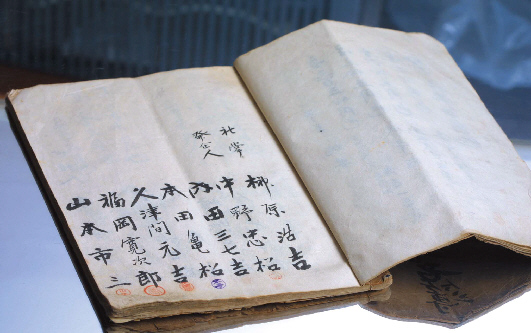 社掌
人
柳原浩吉
中野忠松
田三七吉
本田亀松
津間元吉
福岡寛次郎
山本市三